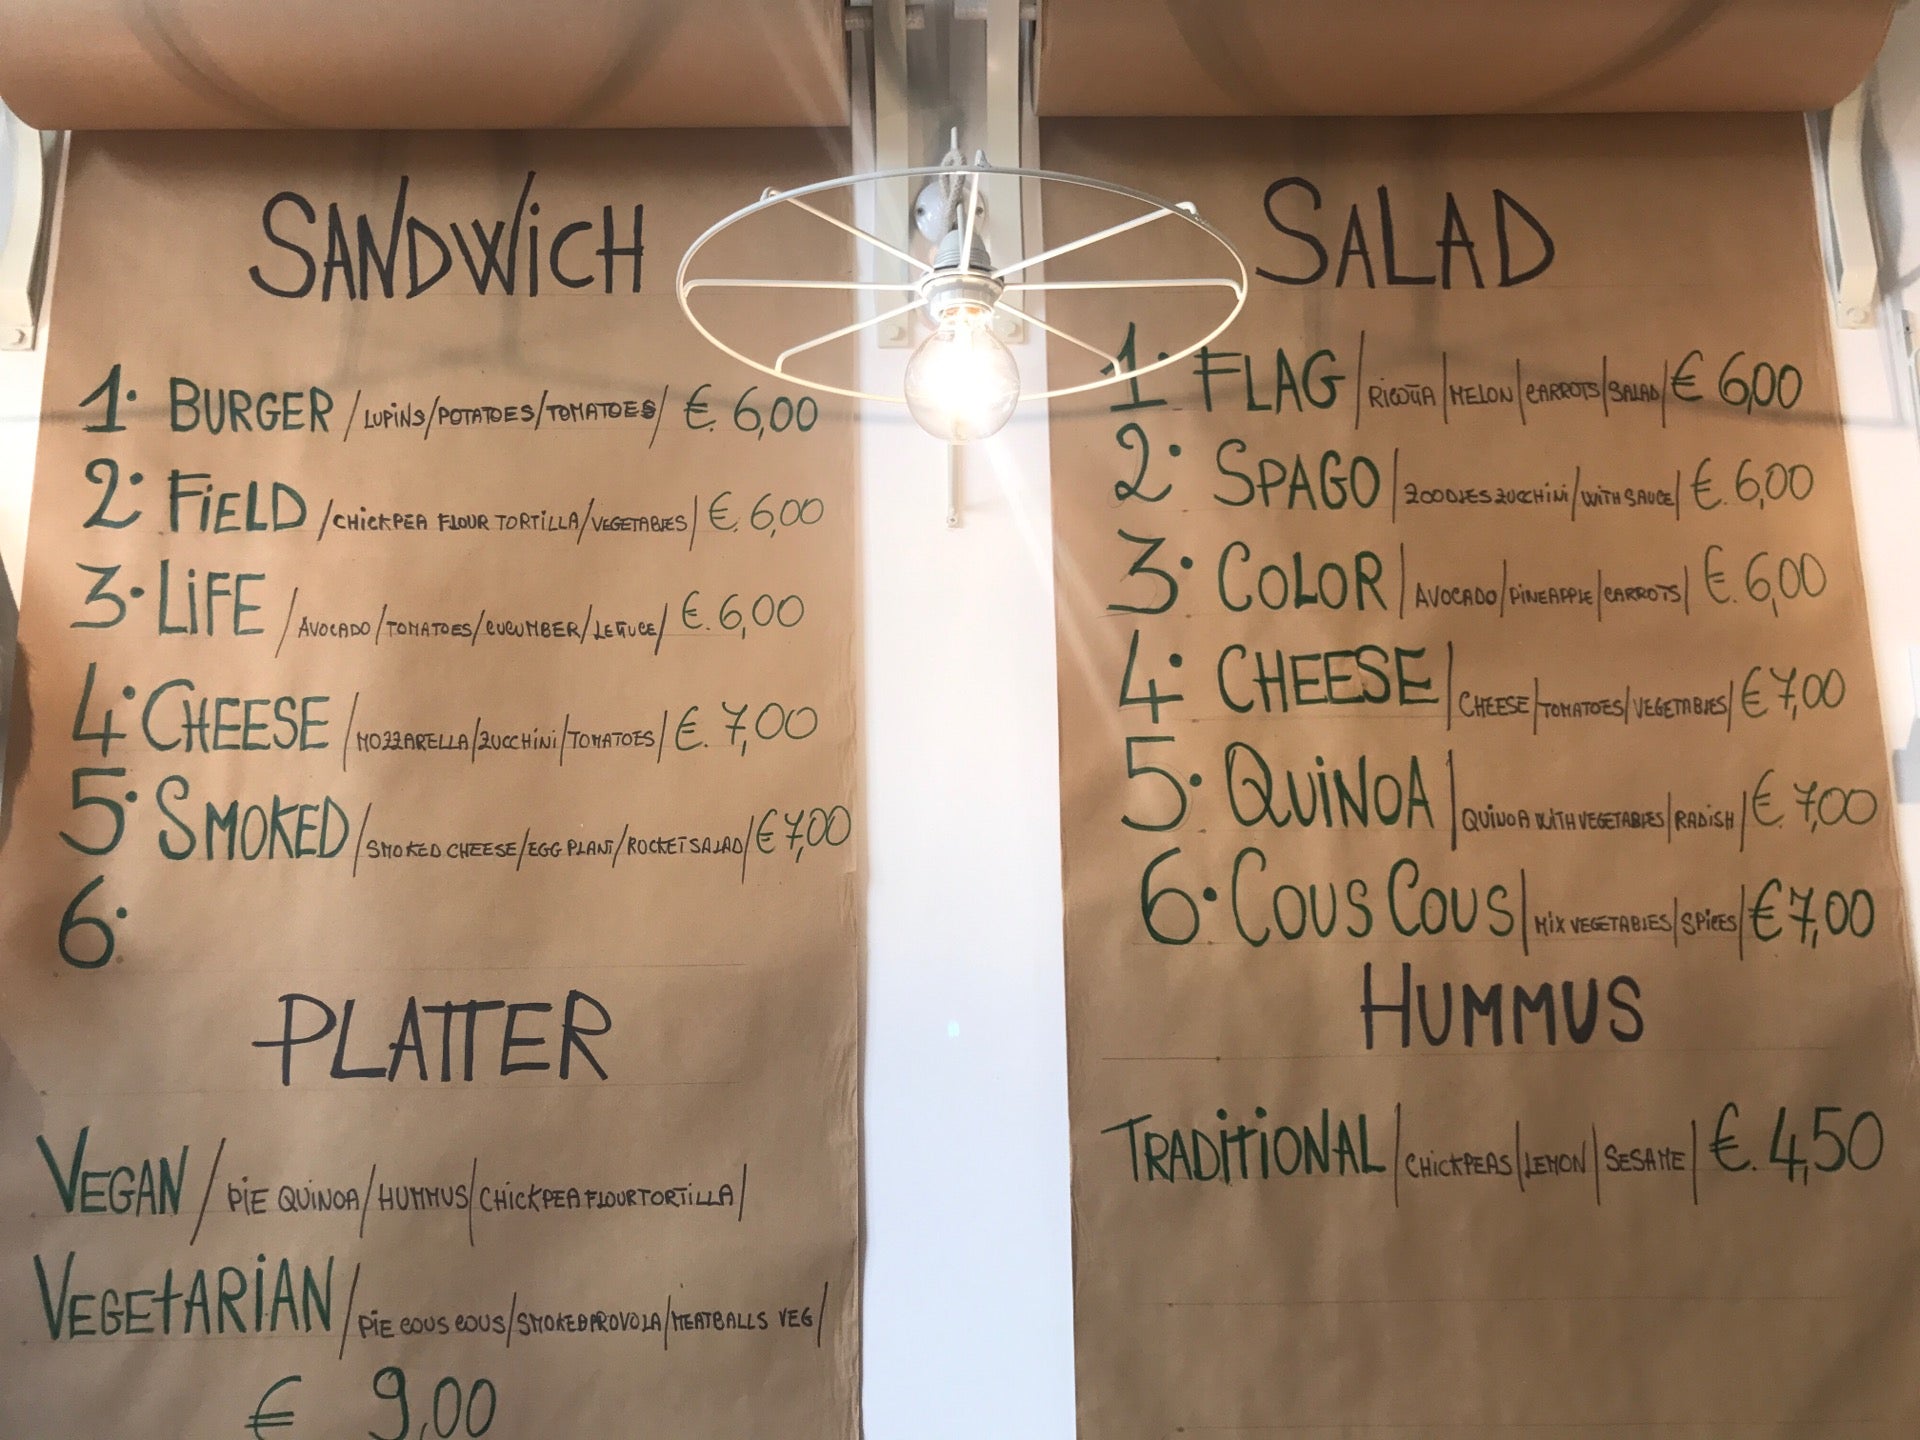 SANDWiCH
1. BURGER / LUPINS / POTATOES / TOMATOES / €. 6,00
2. FiELD / CHICKPEA FLOUR TORTILLA / VEGETABLES / €. 6,00
3. LiFE / AVOCADO / TOMATOES / CUCUMBER / LETTUCE / €. 6,00
4. CHEESE / MOZZARELLA / ZUCCHiNi / TOMATOES / €. 7,00
5. SMOKED / SMOKED CHEESE / EGG PLANT / ROCKET SALAD / € 7,00
6.
PLATTER
VEGAN / PiE QUINOA / HUMMUS / CHICKPEA FLOUR TORTiLLA /
VEGEtARiAN / PiE COUS COUS / SMOKED PROVOLA / MEATBALLS VEG /
€ 9,00
SALAD
1. FLAG / RICOTTA / MELON / CARROTS / SALAD / € 6,00
2. SPAGO / ZOODLES ZUCCHiNi / WiTH SAUCE / €. 6,00
3. COLOR / AVOCADO / PINEAPPLE / CARROTS / €. 6,00
4. CHEESE / CHEESE / TOMATOES / VEGETABLES / € 7,00
5. QUiNOA / QUINOA WITH VEGETABLES / RADISH / €. 7,00
6. COUS COUS / MiX VEGETABLES / SPiCES / € 7,00
HUMMUS
TRADiTiONAL / CHiCKPEAS / LEMON / SESAME / €. 4,50